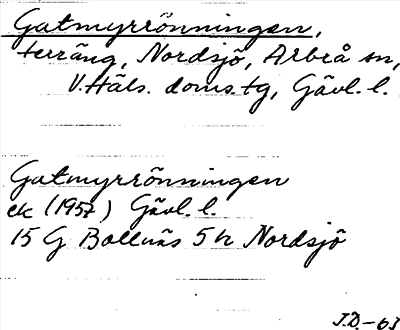 Gatmyrrönningen,
terräng, Nordsjö, Arbrå sn,
V. Häls. doms.tg, Gävl. l.
Gatmyrrönningen
ek (1957) Gävl. l.
15 G Bollnäs 5 h Nordsjö
J.D.-63